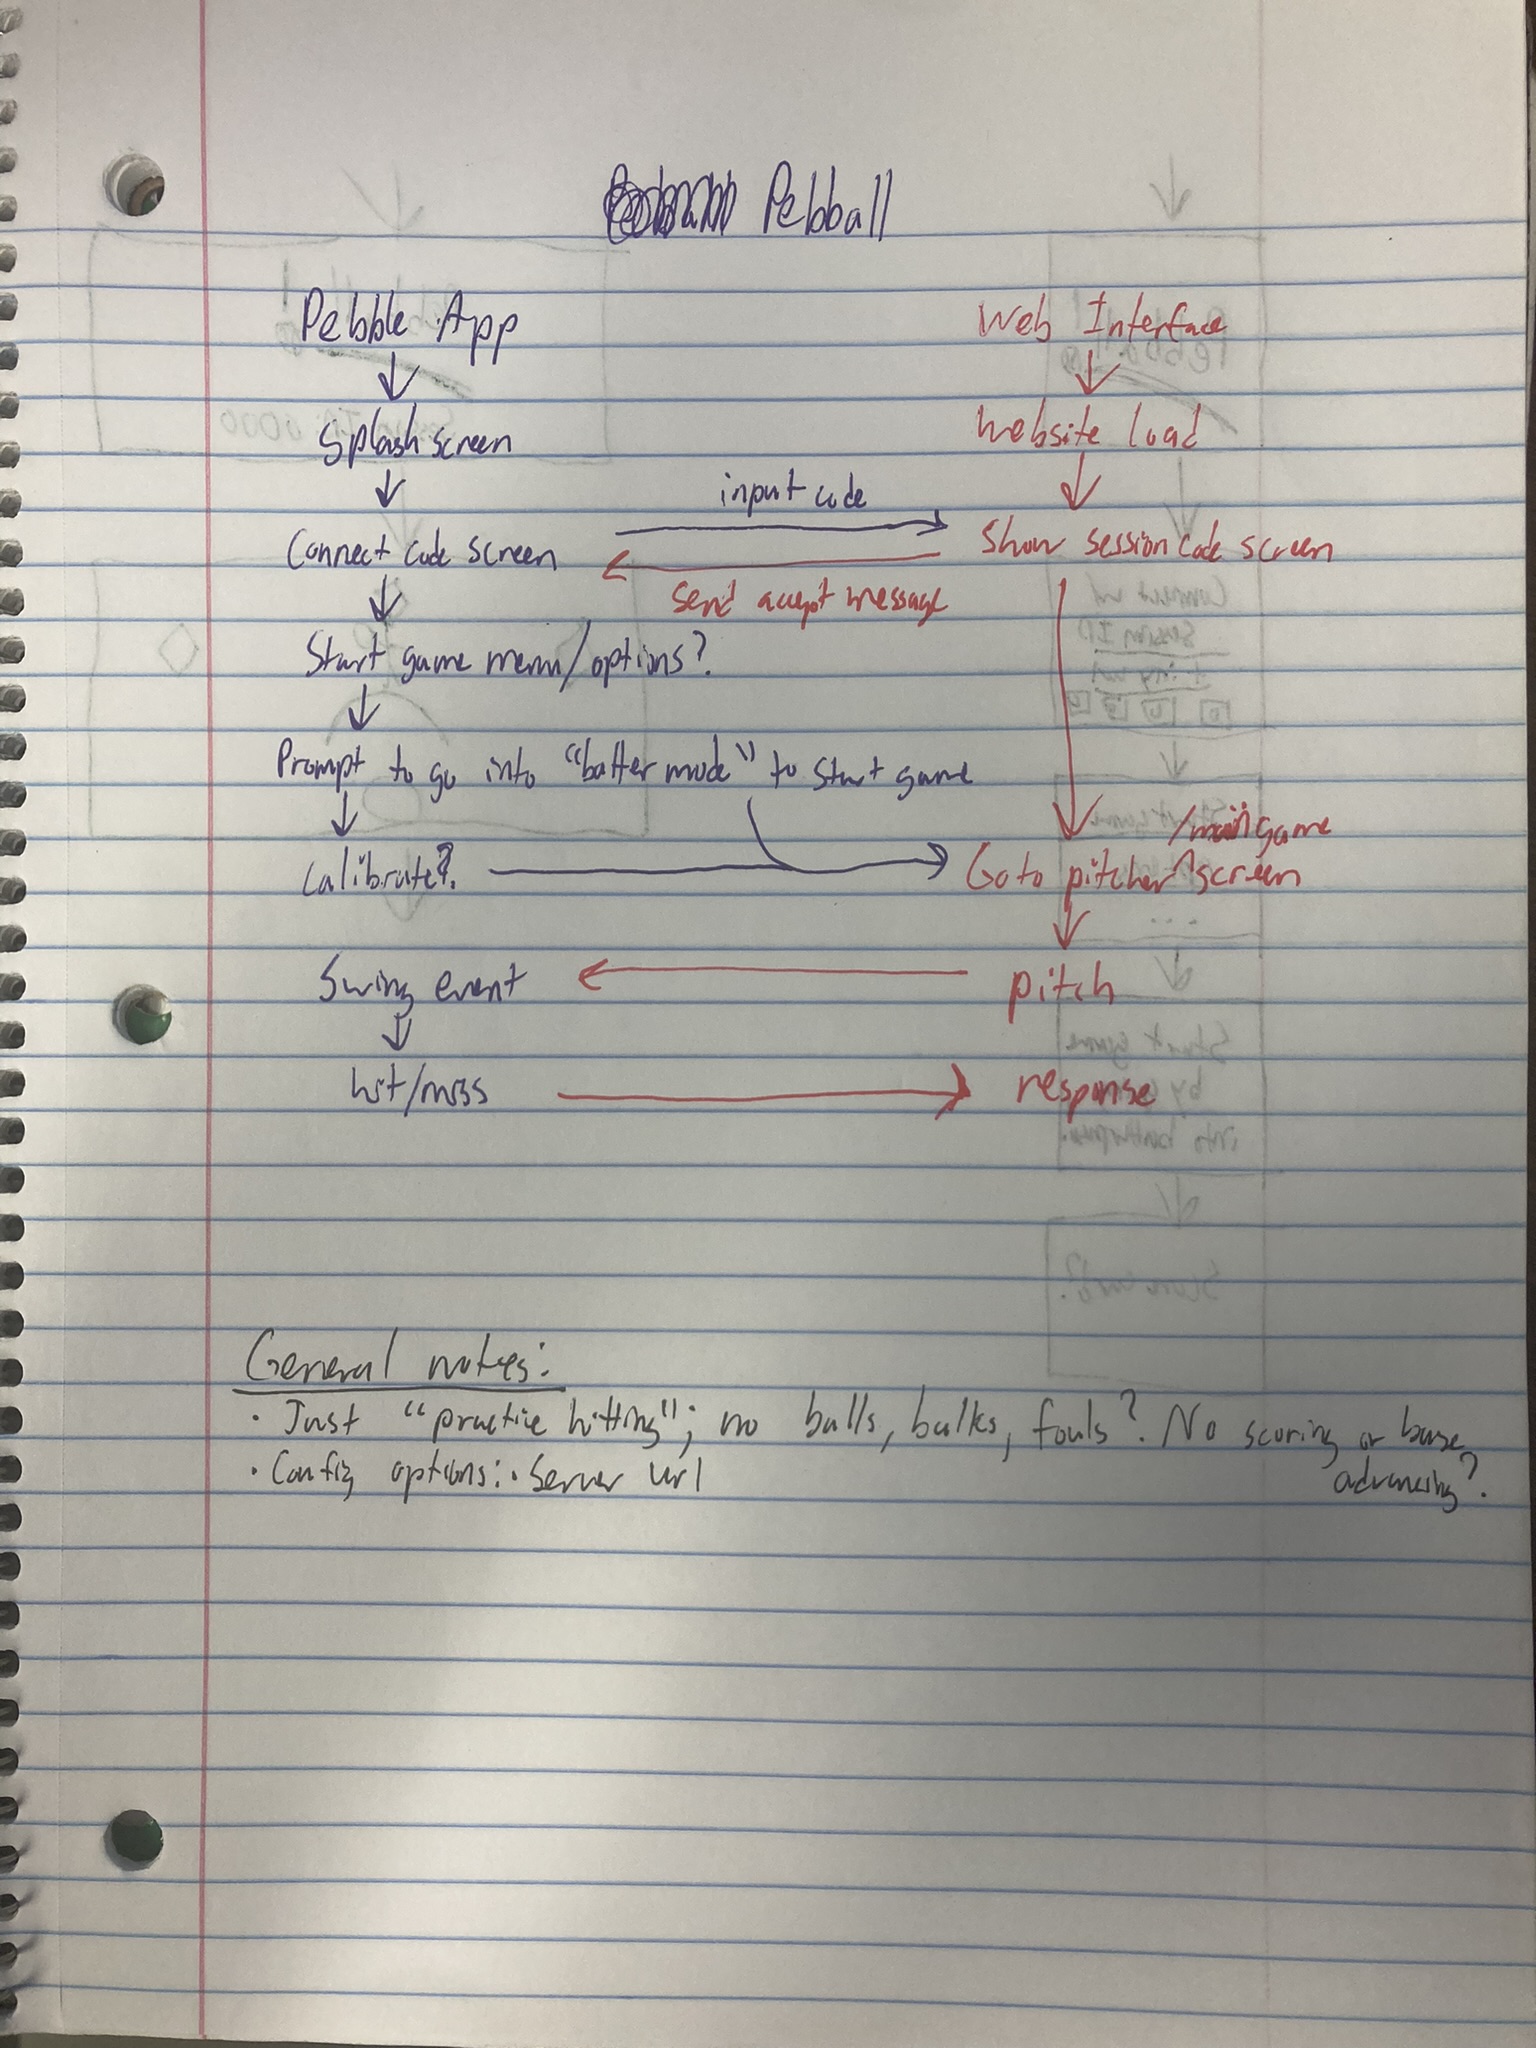 Pebball
Pebble App
Web Interface
Splash screen
Website load
input code
Connect code screen
Show session code screen
Send accept message
Start game menu/options?
Prompt to go into "batter mode" to start game
/main game
Calibrate?
Goto pitcher^screen
Swing event
pitch
hit/miss
response
General notes:
· Just "practice hitting"; no balls, balks, fouls? No scoring or base
advancing?
· Config options: · Server url